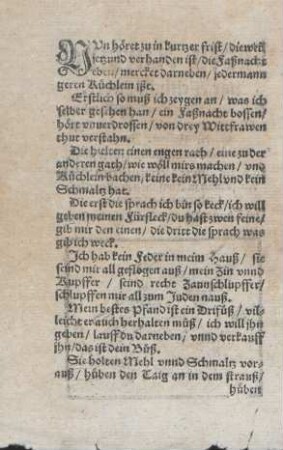 NUn höret zu in kurtzer frist / die weil
jetzund verhanden ist / die Faßnacht
eben / mercket darneben / jedermann
geren Küchlein jßt.
Erstlich so muß ich zeygen an / was ich
selber gesehen han / ein Faßnacht bossen /
hört vnuerdrossen / von drey Witfrawen
thut verstahn.
Die hielten einen engen rath / eine zu der
anderen gath / wie wöll wirs machen / vnd
Küchlein bachen / keine kein Mehl vnd kein
Schmaltz hat.
Die erst die sprach ich bin so keck / ich will
geben meinen Fürfleck / du hast zwen feine /
gib mir den einen / die drit die sprach was
gib ich weck.
Ich hab kein Feder in meim Hauß / sie
seind mir all geflogen auß / mein Zin vnnd
Kupffer / seind recht Zaunschlupffer /
schlupffen mir all zum Juden nauß.
Mein bestes Pfand ist ein Drifüß / vil-
leicht er auch herhalten müß / ich will jhn
geben / lauff du darneben / vnnd verkauff
jhn / das ist dein Büß.
Sie holten Mehl vnnd Schmaltz vor-
auß / hüben den Taig an in dem strauß /
hüben